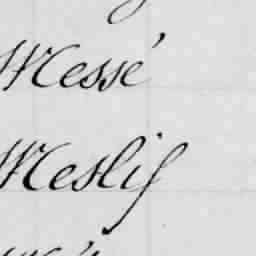 Messé
Meslif